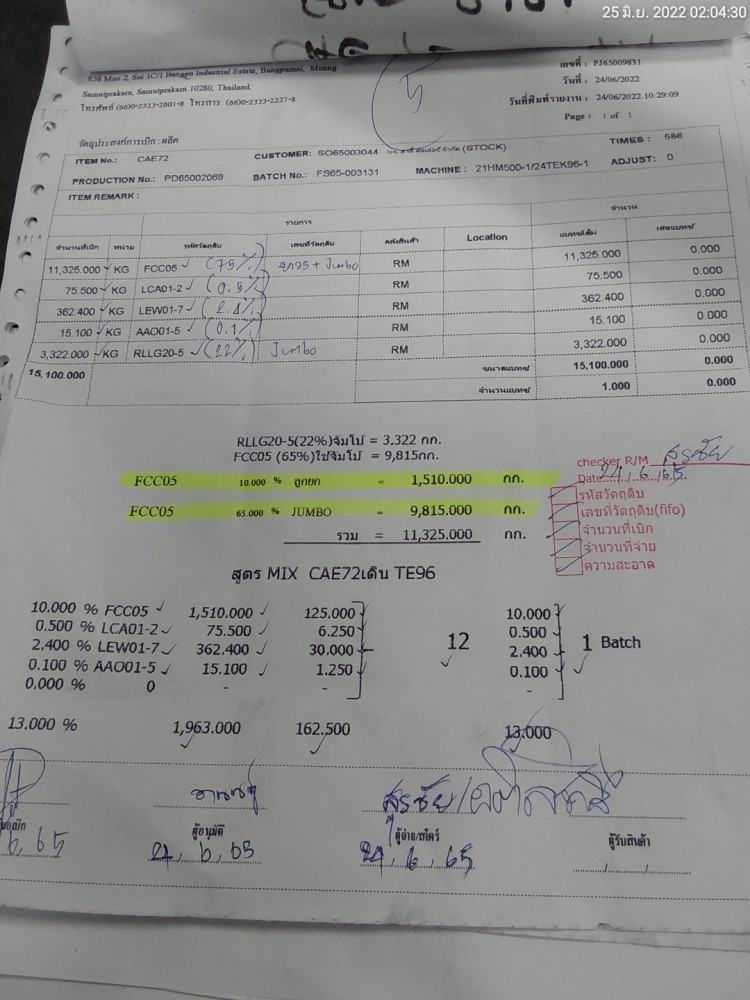 25 มิ.ย. 2022 02:04:30
858 Moo 2, Soi 1C/1 Bangpu Industrial Estate, Bangpumai, Muang
Samutprakarn, Samutprakarn 10280, Thailand.
โทรศัพท์ (66)0-2323-2601-8 โทรสาร (66)0-2323-2227-8
เลขที่ : PJ65009831
วันที่ : 24/06/2022
วันที่พิมพ์รายงาน : 24/06/2022 10:29:09
Page : 1 of 1
วัตถุประสงค์การเบิก : ผลิต
ITEM No.: CAE72 CUSTOMER: SO65003044 (STOCK) TIMES : 586
PRODUCTION No.: PD65002069 BATCH No.: FS65-003131 MACHINE : 21HM500-1/24TEK96-1 ADJUST: 0
ITEM REMARK :
รายการ จำนวน
จำนวนที่เบิก หน่วย รหัสวัตถุดิบ เลขที่วัตถุดิบ คลังสินค้า Location แบทช์เต็ม เศษแบทช์
11,325.000 KG FCC05 (75%) ลูก25 + Jumbo RM 11,325.000 0.000
75.500 KG LCA01-2 (0.5%) RM 75.500 0.000
362.400 KG LEW01-7 (2.4%) RM 362.400 0.000
15.100 KG AAO01-5 (0.1%) RM 15.100 0.000
3,322.000 KG RLLG20-5 (22%) Jumbo RM 3,322.000 0.000
15,100.000 ขนาดแบทช์ 15,100.000 0.000
จำนวนแบทช์ 1.000 0.000
RLLG20-5(22%)จัมโบ้ = 3,322 กก.
FCC05 (65%)ใช้จัมโบ้ = 9,815กก.
FCC05 10.000 % ลูกยก = 1,510.000 กก.
FCC05 65.000 % JUMBO = 9,815.000 กก.
รวม = 11,325.000 กก.
checker R/M สุรชัย
Date 24 / 6 / 65
รหัสวัตถุดิบ
เลขที่วัตถุดิบ(fifo)
จำนวนที่เบิก
จำนวนที่จ่าย
ความสะอาด
สูตร MIX CAE72เดิน TE96
10.000 % FCC05 1,510.000 125.000 10.000
0.500 % LCA01-2 75.500 6.250 0.500
2.400 % LEW01-7 362.400 30.000 12 2.400 1 Batch
0.100 % AAO01-5 15.100 1.250 0.100
0.000 % 0 - - -
13.000 % 1,963.000 162.500 13.000
สุรชัย/
ผู้อนุมัติ ผู้จ่าย/สโตร์ ผู้รับสินค้า
6, 65 24, 6, 65 24, 6, 65